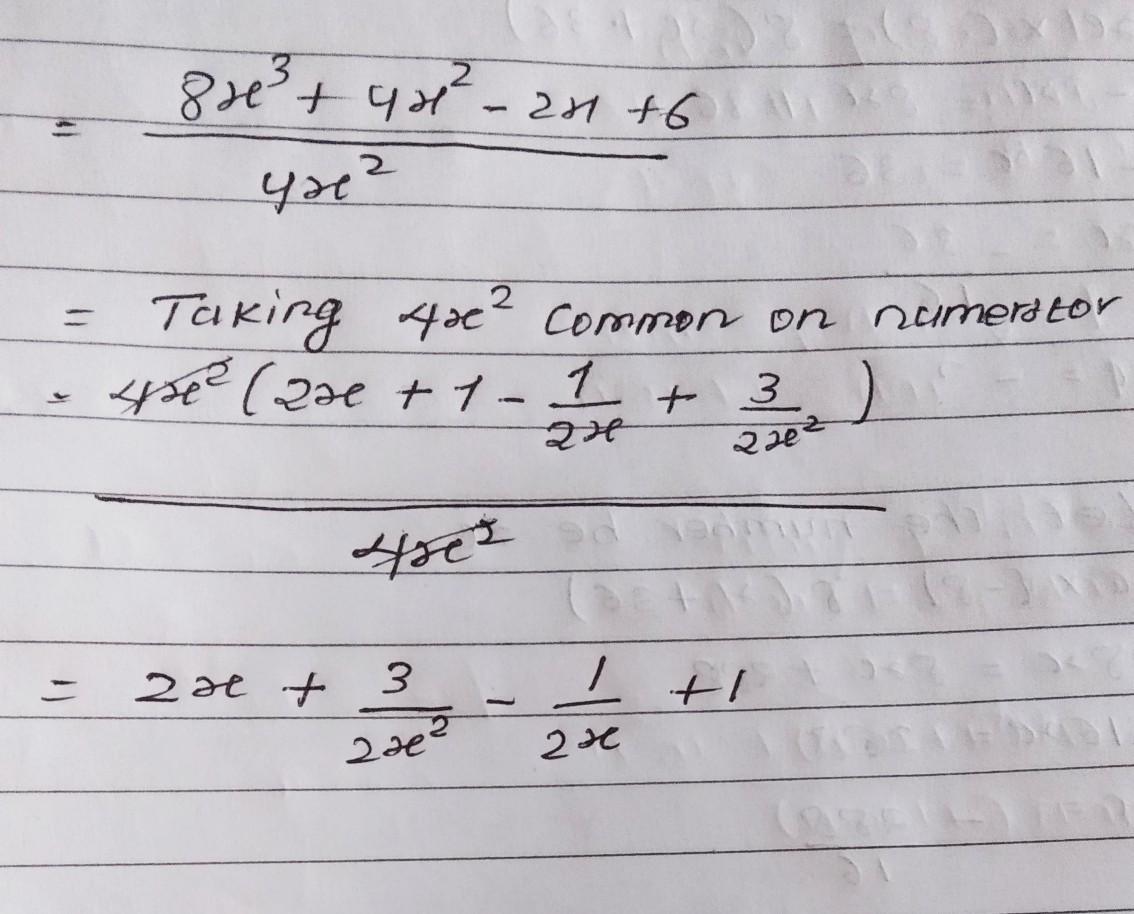 = 8x³ + 4x² - 2x + 6
4x²
= Taking 4x² common on numerator
= 4x² (2x + 1 - 1/2x + 3/2x²)
4x²
= 2x + 3/2x² - 1/2x + 1